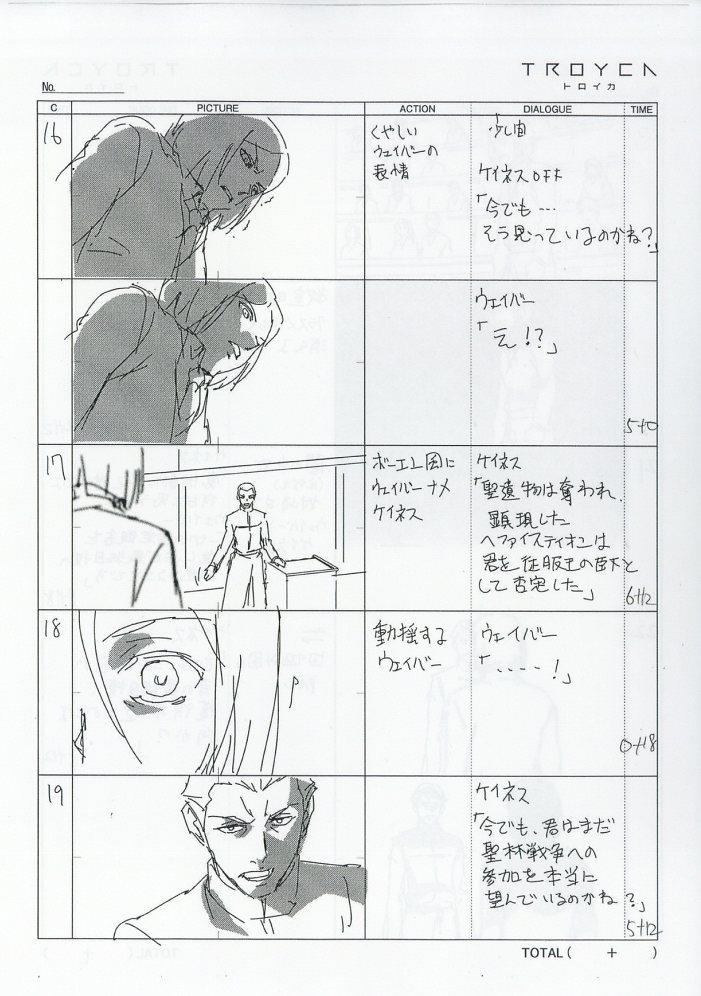 TROYCA
トロイカ
No.
C PICTURE ACTION DIALOGUE TIME
16
くやしい
ウェイバーの
表情
少し間
ケイネスOFF
「今でも…
そう思っているのかね?」
ウェイバー
「え!?」
5+0
17
ウェイバーナメ
ケイネス
ケイネス
「聖遺物は奪われ、
顕現した
ヘファイスティオンは
君を征服王の臣下と
して否定した」
6+12
18
動揺する
ウェイバー
ウェイバー
「....!」
0+18
19
ケイネス
「今でも、君はまだ
聖杯戦争への
参加を本当に
望んでいるのかね?」
5+12
TOTAL ( + )